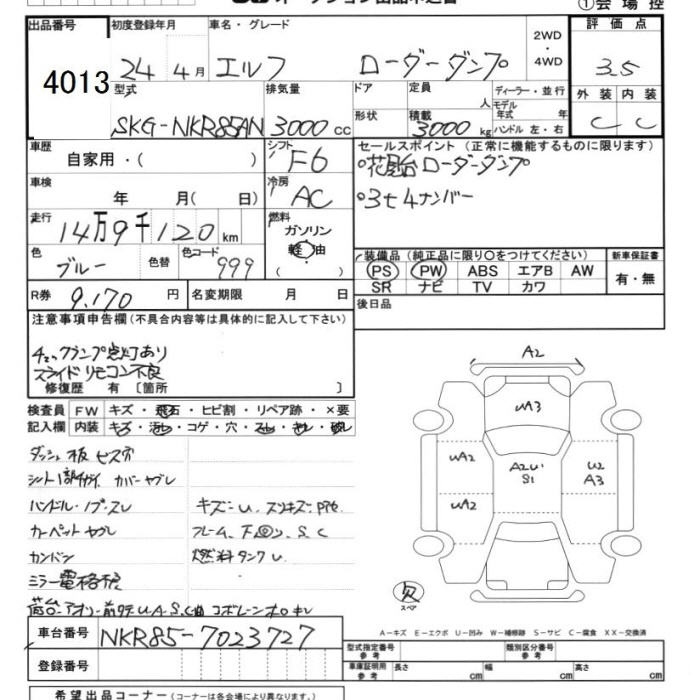 ①会場控
出品番号 初度登録年月 車名・グレード 2WD・4WD 評価点
4013 24年4月 エルフ ローダーダンプ 3.5
型式 排気量 ドア 定員 人 ディーラー・並行 外装 内装
SKG-NKR85AN 3000cc 形状 積載 3000kg モデル年式 年 ハンドル 左・右 C C
車歴 自家用・( ) シフト F6 セールスポイント (正常に機能するものに限ります)
車検 年 月( 日) 冷房 AC
ローダーダンプ
3t4ナンバー
走行 14万9千120km 燃料 ガソリン 軽油
色 ブルー 色替 色コード 999
装備品 (純正品に限り○をつけてください) 新車保証書
PS PW ABS エアB AW 有・無
SR ナビ TV カワ
R券 9,170円 名変期限 月 日 後日品
注意事項申告欄 (不具合内容等は具体的に記入して下さい)
チェックランプ点灯あり
スライドリモコン不良
修復歴 有 [箇所 ]
検査員 FW キズ・飛石・ヒビ割・リペア跡・×要
記入欄 内装 キズ・汚レ・コゲ・穴・スレ・キレ・破レ
A2
UA3
UA2 A2U S1 U2 A3
UA2
カバーヤブレ
ハンドル・
カーペットヤブレ
フレーム、下回り、S、C
燃料タンクU
カンバン
ミラー電格
スペア
A-キズ E-エクボ U-凹み W-補修跡 S-サビ C-腐食 XX-交換済
車台番号 NKR85-7023727
登録番号
型式指定番号 参考 類別区分番号 参考
車庫証明用 参考 長さ cm 幅 cm 高さ cm
希望出品コーナー (コーナーは各会場により異なります)